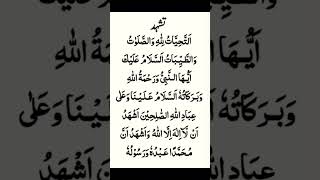 تشهد
اَلتَّحِيَّاتُ لِلّٰهِ وَالصَّلَوٰتُ
وَالطَّيِّبَاتُ اَلسَّلَامُ عَلَيْكَ
اَيُّهَا النَّبِيُّ وَرَحْمَةُ اللّٰهِ
وَبَرَكَاتُهٗ اَلسَّلَامُ عَلَيْنَا وَعَلٰى
عِبَادِ اللّٰهِ الصّٰلِحِيْنَ اَشْهَدُ
اَنْ لَّا اِلٰهَ اِلَّا اللّٰهُ وَاَشْهَدُ اَنَّ
مُحَمَّدًا عَبْدُهٗ وَرَسُوْلُهٗ